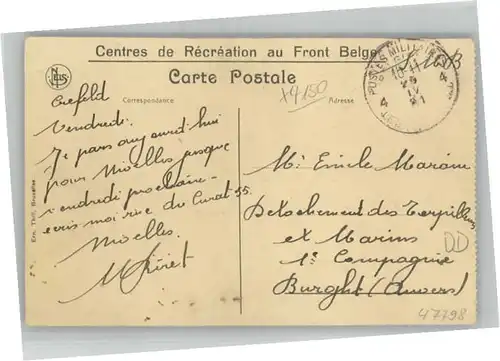 Centres de Récréation au Front Belge
Carte Postale
Correspondance
Adresse
Nels
Ern. Thill, Bruxelles
POSTES MILITAIRES
4 4
Crefeld
Vendredi.
Je pars aujourd'hui
pour Nivelles jusque
vendredi prochain -
ecris moi rue du Curat 55
Nivelles.
Mr Emile
Detachement des Torpilleurs
et Marins
1e Compagnie
Burght (Anvers)
S.M.B
x4150
DD
47798